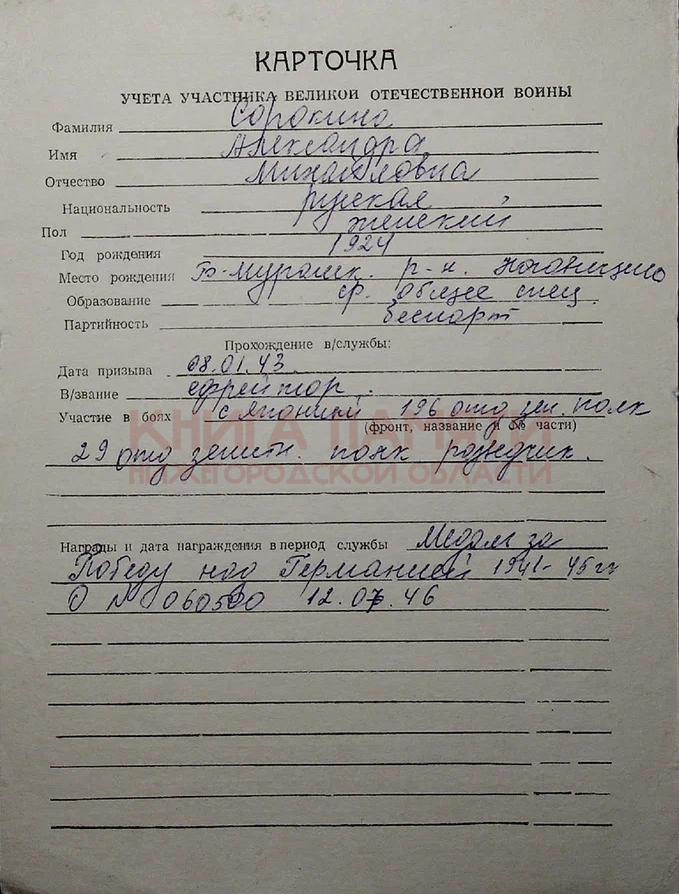 КАРТОЧКА
УЧЕТА УЧАСТНИКА ВЕЛИКОЙ ОТЕЧЕСТВЕННОЙ ВОЙНЫ
Фамилия Сорокина
Имя Александра
Отчество Михайловна
Национальность русская
Пол женский
Год рождения 1924
Место рождения Б-Мурашк. р-н.
Образование ср. общее спец.
Партийность беспарт
Прохождение в/службы:
Дата призыва 08.01.43
В/звание ефрейтор.
Участие в боях с Японией 196 отд зен. полк
(фронт, название и № части)
КНИГА ПАМЯТИ
НИЖЕГОРОДСКОЙ ОБЛАСТИ
29 отд зенитн. полк разведчик.
Награды и дата награждения в период службы Медаль за
Победу над Германией 1941-45 гг
О № 060500 12.07.46